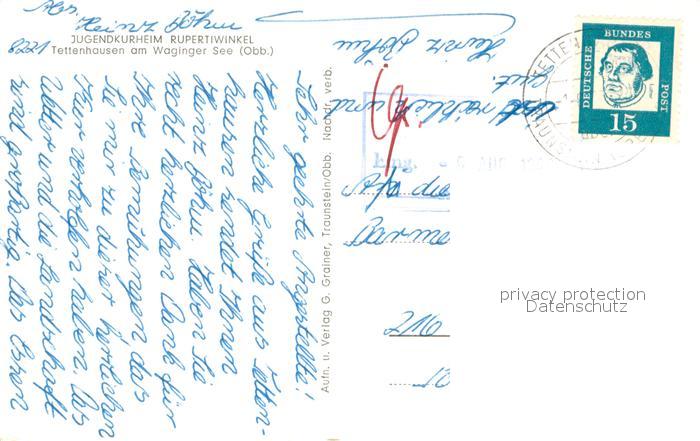 Abs. Heinz Böhm
JUGENDKURHEIM RUPERTIWINKEL
8221 Tettenhausen am Waginger See (Obb.)
Sehr geehrte Angestellte!
Herzliche Grüße aus Tetten-
hausen sendet Ihnen
Heinz Böhm. Haben Sie
recht herzlichen Dank für
Ihre Bemühungen das
Sie mir zu dieser herrlichen
Kur verholfen haben. Das
Wetter und die Landschaft
sind großartig. Das Essen
ist reichlich und
gut.
Heinz Böhm
Aufn. u. Verlag G. Grainer, Traunstein/Obb. Nachdr. verb.
DEUTSCHE BUNDES POST
15
Eing.
An die
Barmer
216
privacy protection
Datenschutz